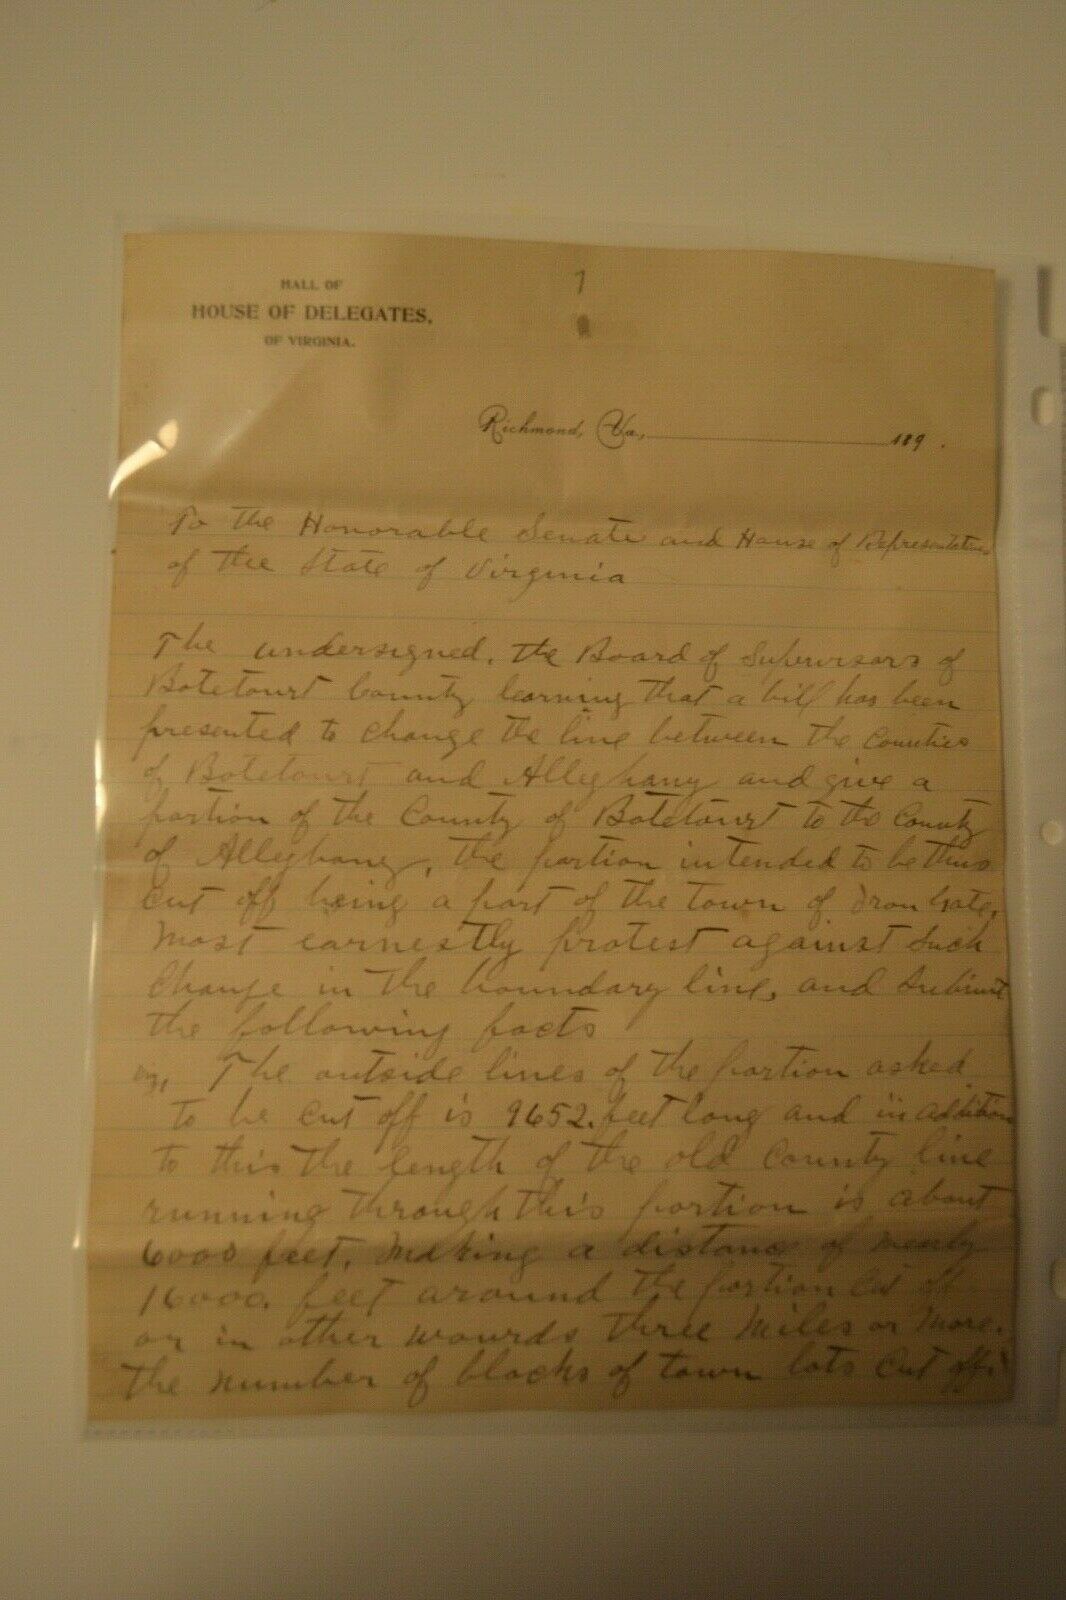 7
HALL OF
HOUSE OF DELEGATES,
OF VIRGINIA.
Richmond, Va., 189 .
To the Honorable Senate and House of Representatives
of the State of Virginia
The undersigned, the Board of Supervisors of
Botetourt County learning that a bill has been
presented to change the line between the Counties
of Botetourt and Alleghany and give a
portion of the County of Botetourt to the County
of Alleghany, the portion intended to be thus
cut off being a part of the town of Iron Gate,
most earnestly protest against such
change in the boundary line, and submit
the following facts
The outside lines of the portion asked
to be cut off is 9652. feet long and in addition
to this the length of the old County line
running through this portion is about
6000 feet, making a distance of nearly
16000. feet around the portion cut off
or in other wourds three miles or more.
the number of blocks of town lots cut off